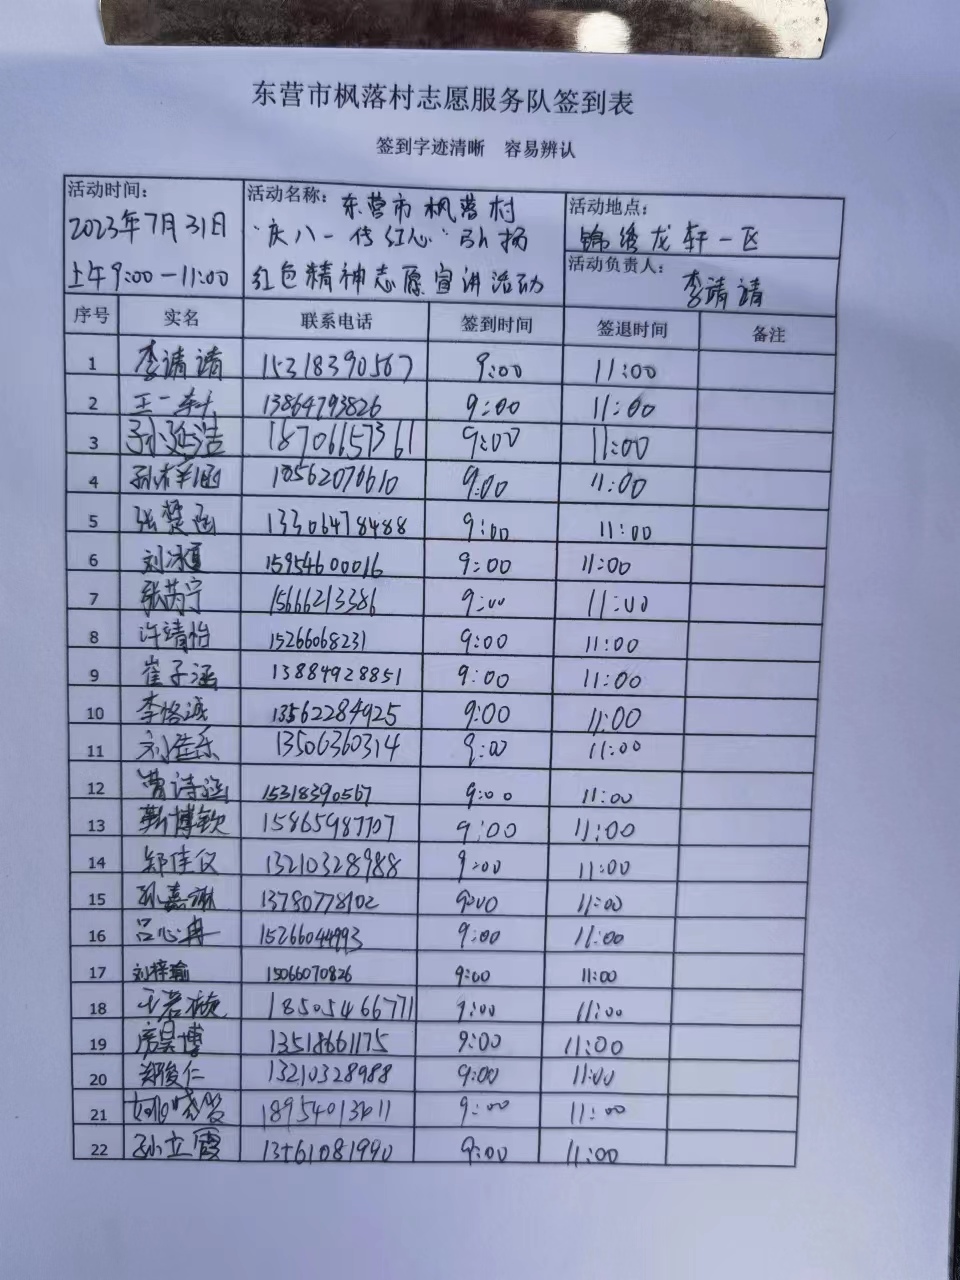 东营市枫落村志愿服务队签到表
签到字迹清晰 容易辨认
活动时间：
2023年7月31日
上午9:00-11:00
活动名称：东营市枫落村
"庆八一 传红心"弘扬
红色精神志愿宣讲活动
活动地点：
锦绣龙轩一区
活动负责人：
李靖靖
序号 实名 联系电话 签到时间 签退时间 备注
1 李靖靖 15318390567 9:00 11:00
2 王一 13864793826 9:00 11:00
3 孙延浩 18706657361 9:00 11:00
4 孙祥涵 18562070610 9:00 11:00
5 张楚涵 13306478488 9:00 11:00
6 刘 15954600016 9:00 11:00
7 张芮宁 15666213386 9:00 11:00
8 许靖怡 15266068231 9:00 11:00
9 崔子涵 13884928851 9:00 11:00
10 李恪诚 13562284925 9:00 11:00
11 刘佳乐 13506360314 9:00 11:00
12 曹诗涵 15318390567 9:00 11:00
13 靳博钦 15865987707 9:00 11:00
14 郑佳仪 13210328988 9:00 11:00
15 孙嘉琳 13780778102 9:00 11:00
16 吕心冉 15266044993 9:00 11:00
17 刘梓瑜 15066070826 9:00 11:00
18 王若 18505466771 9:00 11:00
19 房昊博 13518661175 9:00 11:00
20 郑俊仁 13210328988 9:00 11:00
21 18954013611 9:00 11:00
22 孙立霞 13461081990 9:00 11:00